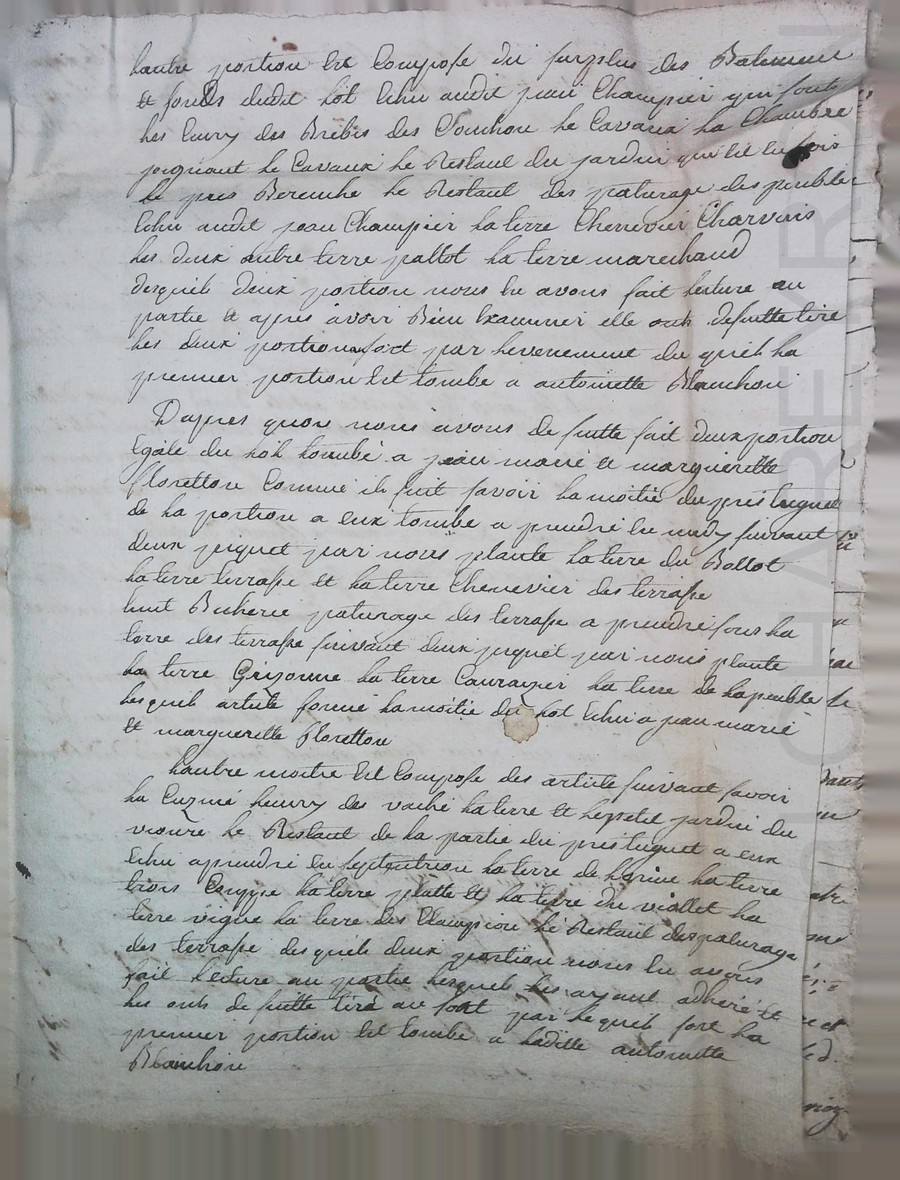 lautre portion Est Compose du surplus des Batiment
Et fonds dudit lot Echu audit jean Champier qui sont
les Ecury des Brebis des Couchon le Cavaux la Chambre
joignant le Cavaux le Restant du jardin qui Est
le pres le Restant des paturage des peuble
Echu audit jean Champier la terre Chenevier Charveris
les deux autre terre pallot la terre marechaud
desquels deux portion nous En avons fait Lecture au
partie Et apres avoir Bien Examiner elle ont desuitte tire
les deux portion sort par levenement du quels la
premier portion Est tombe a antoinette Blanchon
Dapres quoy nous avons de suitte fait deux portion
Egale du lot tombé a jean marie Et marguerette
florettou Comme il suit savoir la moitié du pres tuguet
de la portion a Eux tombe a prendre En midy suivant
deux piquet par nous plante la terre du Ballot
la terre terrasse Et la terre Chenevier des terrasse
huit Bicherie paturage des terrasse a prendre sous la
terre des terrasse suivant deux piquet par nous plante
La terre Grizonne la terre la terre de la peuble
lesquels article forme la moitie du lot Echu a jean marie
Et marguerette florettou
Lautre moitie Est Compose des article suivant savoir
la Cuzine Lecury des vache la terre Et le petit jardin du
le Restant de la partie du pres tuguet a eux
Echu aprendre En septentrion la terre de la rive la terre
trois la terre platte Et la terre du viallet la
terre vigne la terre des Champion Le Restant des paturage
des terrasse desquels deux portion nous En avons
fait Lecture au partie lesquels les ayant adhere Et
les ont de suitte tiré au sort par lequels sort la
premier portion Est tombe a laditte antoinette
Blanchon